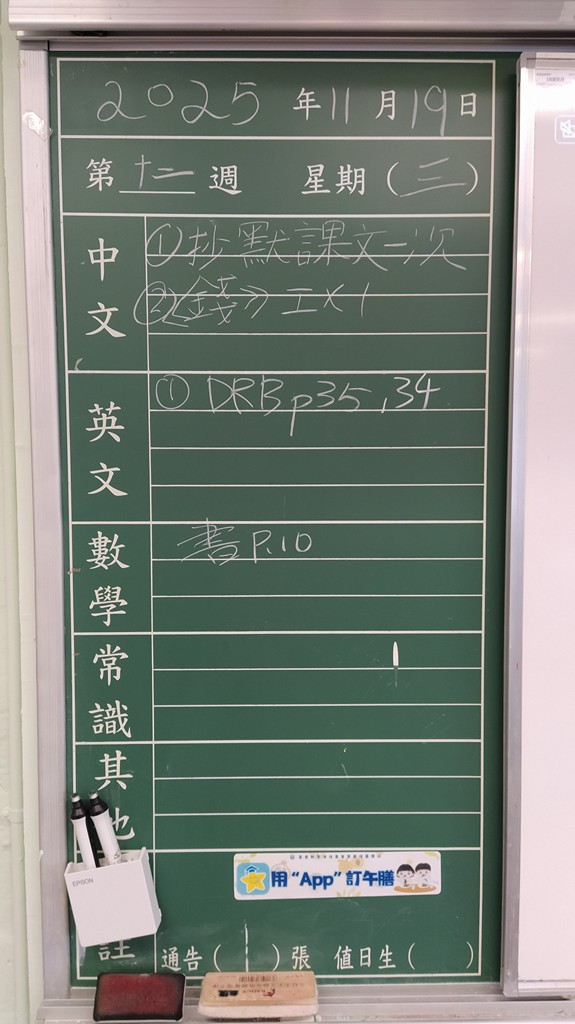 2025 年 11 月 19 日
第 十二 週 星期 (三)
中文
①抄默課文一次
②《錢》工x1
英文
① DRB p35,34
數學
書 P.10
常識
其他
用 “App” 訂午膳
EPSON
註
通告 ( 1 ) 張 值日生 ( )